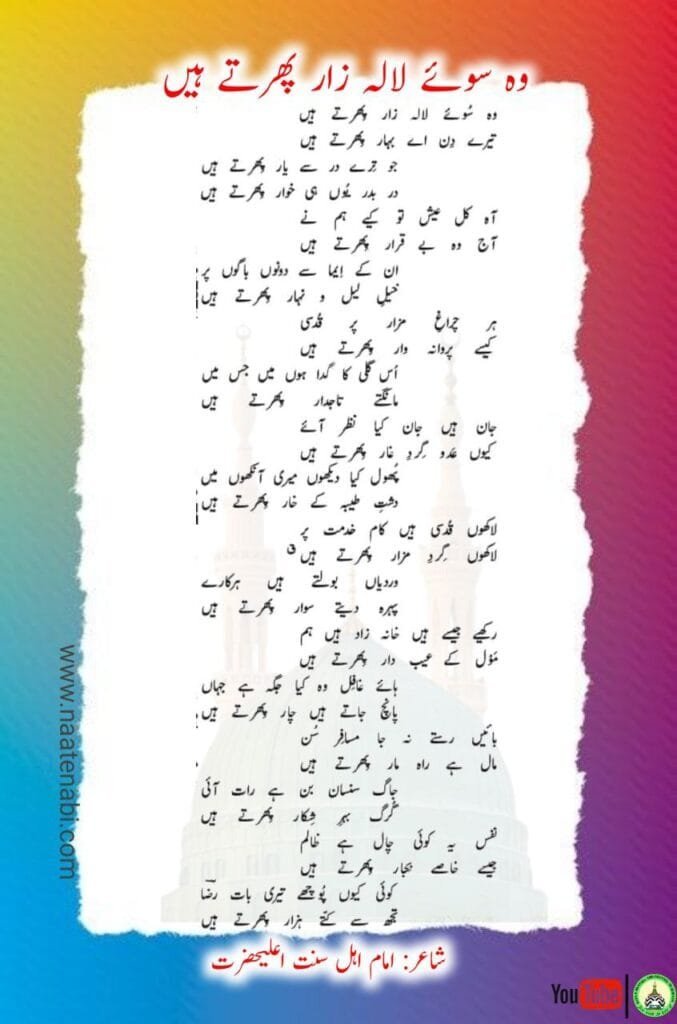 وہ سوئے لالہ زار پھرتے ہیں
وہ سُوئے لالہ زار پھرتے ہیں
تیرے دِن اے بہار پھرتے ہیں
جو تِرے در سے یار پھرتے ہیں
در بدر یُوں ہی خوار پھرتے ہیں
آہ کل عیش تو کیے ہم نے
آج وہ بے قرار پھرتے ہیں
ان کے اِیما سے دونوں باگوں پر
خیلِ لیل و نہار پھرتے ہیں
ہر چراغِ مزار پر قُدسی
کیسے پروانہ وار پھرتے ہیں
اُس گلی کا گدا ہوں میں جس میں
مانگتے تاجدار پھرتے ہیں
جان ہیں جان کیا نظر آئے
کیوں عدو گِردِ غار پھرتے ہیں
پُھول کیا دیکھوں میری آنکھوں میں
دشتِ طیبہ کے خار پھرتے ہیں
لاکھوں قُدسی ہیں کام خدمت پر
لاکھوں گِردِ مزار پھرتے ہیں
وردیاں بولتے ہیں ہرکارے
پہرہ دیتے سوار پھرتے ہیں
رکھیے جیسے ہیں خانہ زاد ہیں ہم
مَوْل کے عیب دار پھرتے ہیں
ہائے غافل وہ کیا جگہ ہے جہاں
پانچ جاتے ہیں چار پھرتے ہیں
بائیں رستے نہ جا مسافر سُن
مال ہے راہ مار پھرتے ہیں
جاگ سنسان بن ہے رات آئی
گُرگ بہرِ شِکار پھرتے ہیں
نفس یہ کوئی چال ہے ظالم
جیسے خاصے بِجار پھرتے ہیں
کوئی کیوں پُوچھے تیری بات رضاؔ
تجھ سے کُتّے ہزار پھرتے ہیں
شاعر: امام اہل سنت اعلیحضرت
www.naatenabi.com
YouTube